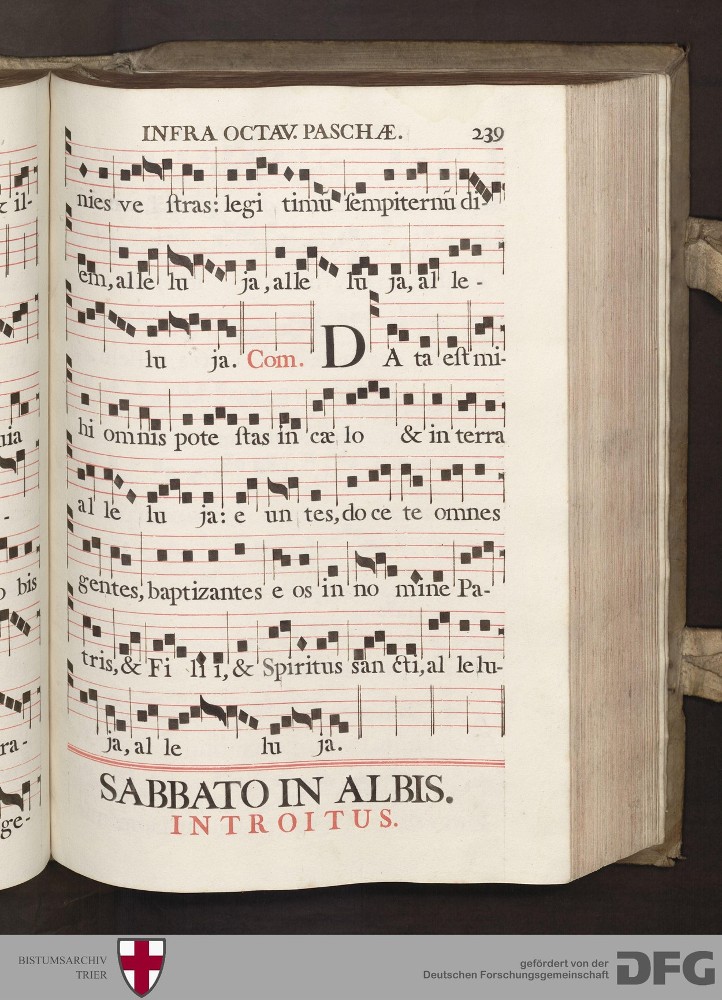 INFRA OCTAV. PASCHÆ. 239
nies ve stras: legi timũ sempiternũ di-
em, alle lu ja, alle lu ja, al le -
lu ja. Com. DA ta est mi-
hi omnis pote stas in cæ lo & in terra
al le lu ja: e un tes, do ce te omnes
gentes, baptizantes e os in no mine Pa-
tris, & Fi li i, & Spiritus san cti, al le lu-
ja, al le lu ja.
SABBATO IN ALBIS.
INTROITUS.
& il-
uia
-
o bis
ra-
ge-
BISTUMSARCHIV
TRIER
gefördert von der
Deutschen Forschungsgemeinschaft
DFG